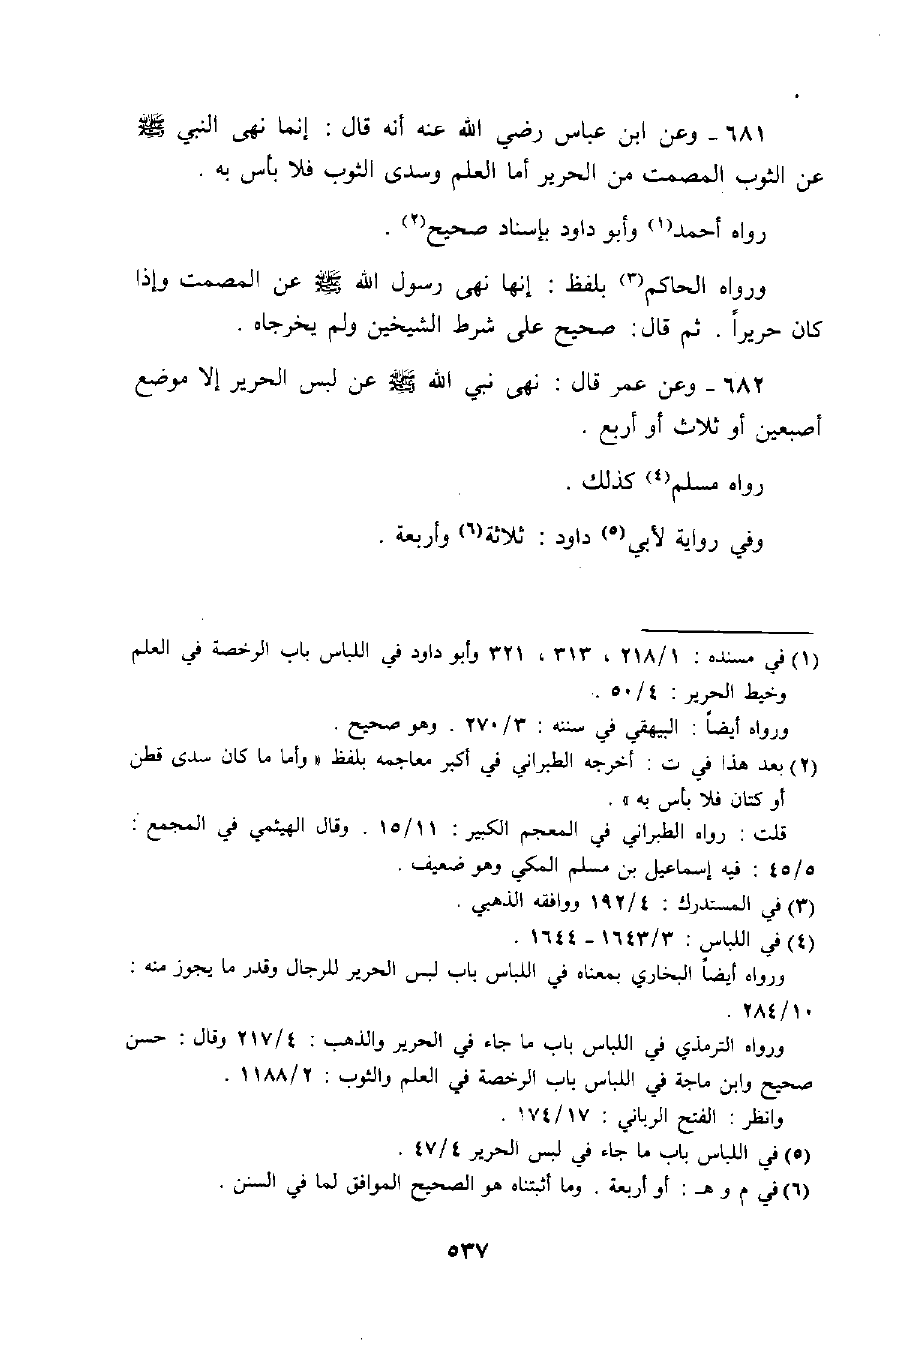 ٦٨١ ـ وعن ابن عباس رضي الله عنه أنه قال : إنما نهى النبي ﷺ
عن الثوب المصمت من الحرير أما العلم وسدى الثوب فلا بأس به .
رواه أحمد(١) وأبو داود بإسناد صحيح(٢) .
ورواه الحاكم(٣) بلفظ : إنها نهى رسول الله ﷺ عن المصمت وإذا
كان حريراً . ثم قال: صحيح على شرط الشيخين ولم يخرجاه .
٦٨٢ ـ وعن عمر قال : نهى نبي الله ﷺ عن لبس الحرير إلا موضع
أصبعين أو ثلاث أو أربع .
رواه مسلم(٤) كذلك .
وفي رواية لأبي(٥) داود : ثلاثة(٦) وأربعة .
(١) في مسنده : ٢١٨/١ ، ٣١٣ ، ٣٢١ وأبو داود في اللباس باب الرخصة في العلم
وخيط الحرير : ٥٠/٤ .
ورواه أيضاً : البيهقي في سننه : ٢٧٠/٣ . وهو صحيح .
(٢) بعد هذا في ت : أخرجه الطبراني في أكبر معاجمه بلفظ « وأما ما كان سدى قطن
أو كتان فلا بأس به » .
قلت : رواه الطبراني في المعجم الكبير : ١٥/١١ . وقال الهيثمي في المجمع :
٤٥/٥ : فيه إسماعيل بن مسلم المكي وهو ضعيف .
(٣) في المستدرك : ١٩٢/٤ ووافقه الذهبي .
(٤) في اللباس : ١٦٤٣/٣ ـ ١٦٤٤ .
ورواه أيضاً البخاري بمعناه في اللباس باب لبس الحرير للرجال وقدر ما يجوز منه :
٢٨٤/١٠ .
ورواه الترمذي في اللباس باب ما جاء في الحرير والذهب : ٢١٧/٤ وقال : حسن
صحيح وابن ماجة في اللباس باب الرخصة في العلم والثوب : ١١٨٨/٢ .
وانظر : الفتح الرباني : ١٧٤/١٧ .
(٥) في اللباس باب ما جاء في لبس الحرير ٤٧/٤ .
(٦) في م و هـ : أو أربعة . وما أثبتناه هو الصحيح الموافق لما في السنن .
٥٣٧